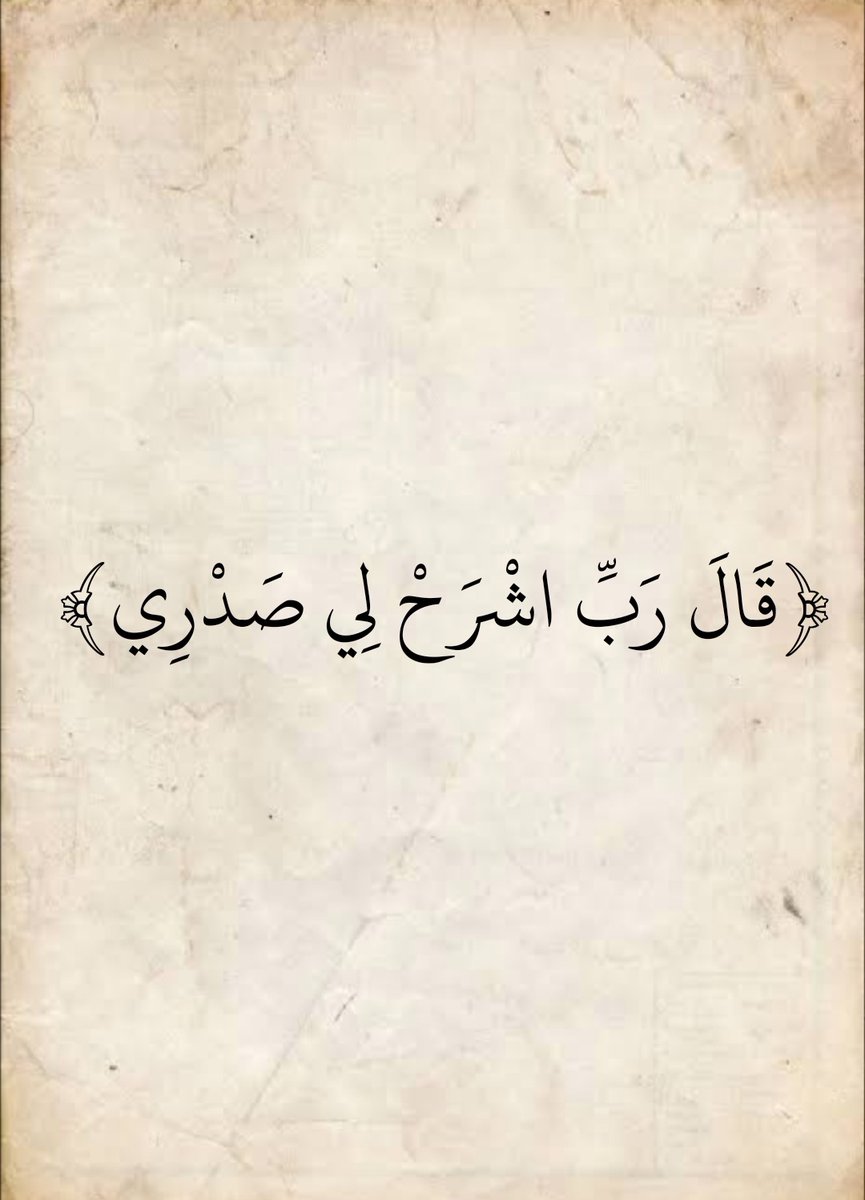 ﴿قَالَ رَبِّ اشْرَحْ لِي صَدْرِي﴾